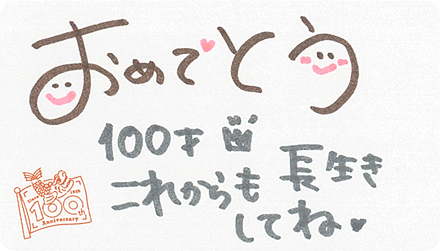 おめでとう
100才
これからも長生き
してね
Since 1926
100th
Anniversary